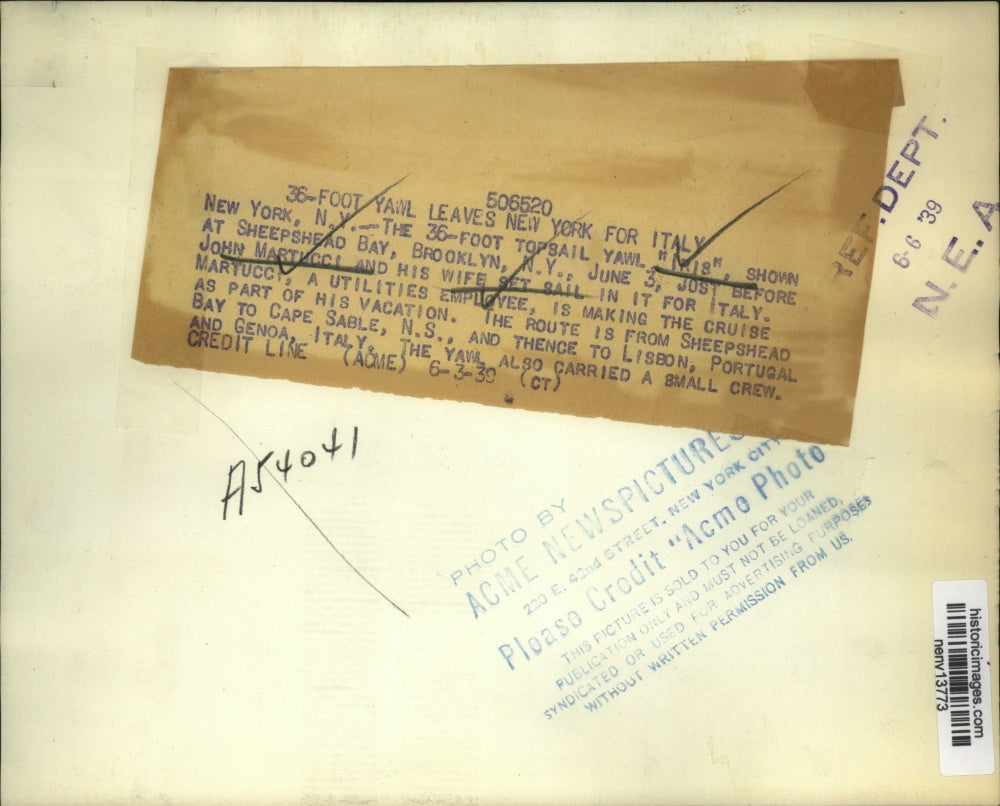 36-FOOT YAWL LEAVES NEW YORK FOR ITALY
506520
NEW YORK, N.Y.--THE 36-FOOT TOPSAIL YAWL, "IRIS", SHOWN
AT SHEEPSHEAD BAY, BROOKLYN, N.Y., JUNE 3, JUST BEFORE
JOHN MARTUCCI AND HIS WIFE SET SAIL IN IT FOR ITALY.
MARTUCCI, A UTILITIES EMPLOYEE, IS MAKING THE CRUISE
AS PART OF HIS VACATION. THE ROUTE IS FROM SHEEPSHEAD
BAY TO CAPE SABLE, N.S., AND THENCE TO LISBON, PORTUGAL
AND GENOA, ITALY. THE YAWL ALSO CARRIED A SMALL CREW.
CREDIT LINE (ACME) 6-3-39 (CT)
REF. DEPT.
6-6 '39
N.E.A
A54041
PHOTO BY
ACME NEWSPICTURES
220 E. 42nd STREET, NEW YORK CITY
Please Credit "Acme Photo
THIS PICTURE IS SOLD TO YOU FOR YOUR
PUBLICATION ONLY AND MUST NOT BE LOANED,
SYNDICATED OR USED FOR ADVERTISING PURPOSES
WITHOUT WRITTEN PERMISSION FROM US.
historicimages.com
nenv13773